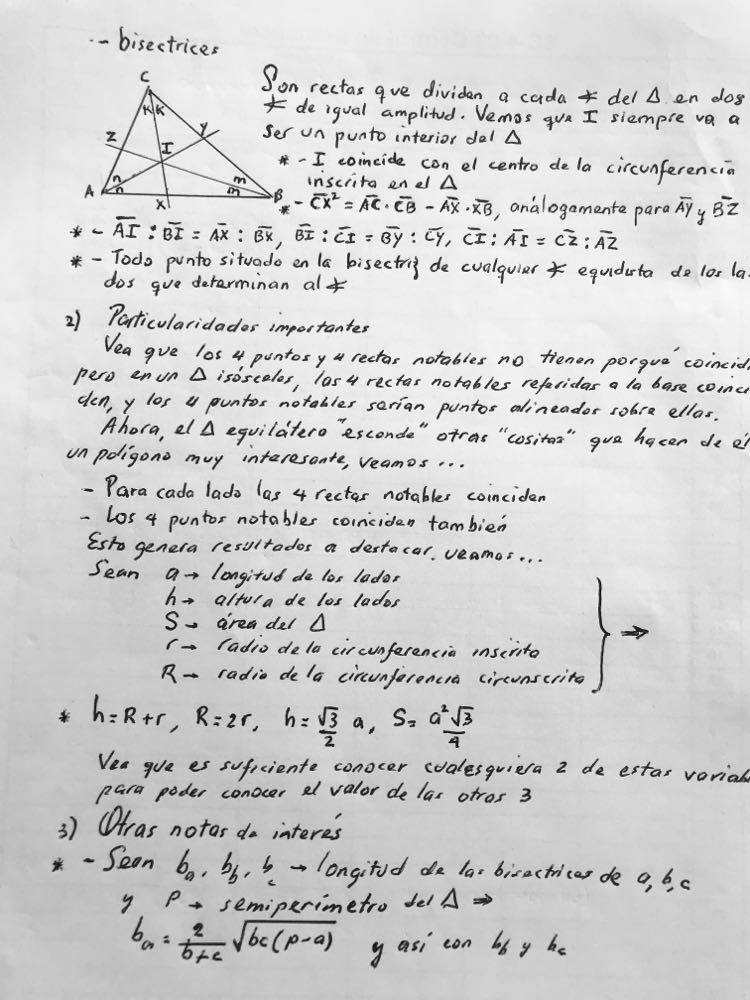 -- bisectrices
C
K K
Z
Y
I
n
n
m
m
A
B
X
Son rectas que dividen a cada ∢ del Δ en dos
∢ de igual amplitud. Vemos que I siempre va a
ser un punto interior del Δ
* - I coincide con el centro de la circunferencia
inscrita en el Δ
* - C̅X̅² = A̅C̅ · C̅B̅ - A̅X̅ · X̅B̅, análogamente para A̅Y̅ y B̅Z̅
* - A̅I̅ : B̅I̅ = A̅X̅ : B̅X̅, B̅I̅ : C̅I̅ = B̅Y̅ : C̅Y̅, C̅I̅ : A̅I̅ = C̅Z̅ : A̅Z̅
* - Todo punto situado en la bisectriz de cualquier ∢ equidista de los la-
dos que determinan al ∢
2) Particularidades importantes
Vea que los 4 puntos y 4 rectas notables no tienen porqué coincidi
pero en un Δ isósceles, las 4 rectas notables referidas a la base coinci
den, y los 4 puntos notables serían puntos alineados sobre ellas.
Ahora, el Δ equilátero "esconde" otras "cositas" que hacen de él
un polígono muy interesante, veamos...
- Para cada lado las 4 rectas notables coinciden
- Los 4 puntos notables coinciden también
Esto genera resultados a destacar. veamos...
Sean a → longitud de los lados
h → altura de los lados
S → área del Δ
r → radio de la circunferencia inscrita
R → radio de la circunferencia circunscrita
} ⇒
* h = R + r, R = 2r, h = √3/2 a, S = a²√3/4
Vea que es suficiente conocer cualesquiera 2 de estas variabl
para poder conocer el valor de las otras 3
3) Otras notas de interés
* - Sean b_a, b_b, b_c → longitud de las bisectrices de a, b, c
y P → semiperímetro del Δ ⇒
b_a = 2/(b+c) √bc(p-a) y así con b_b y b_c